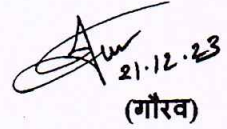 21.12.23
(गौरव)